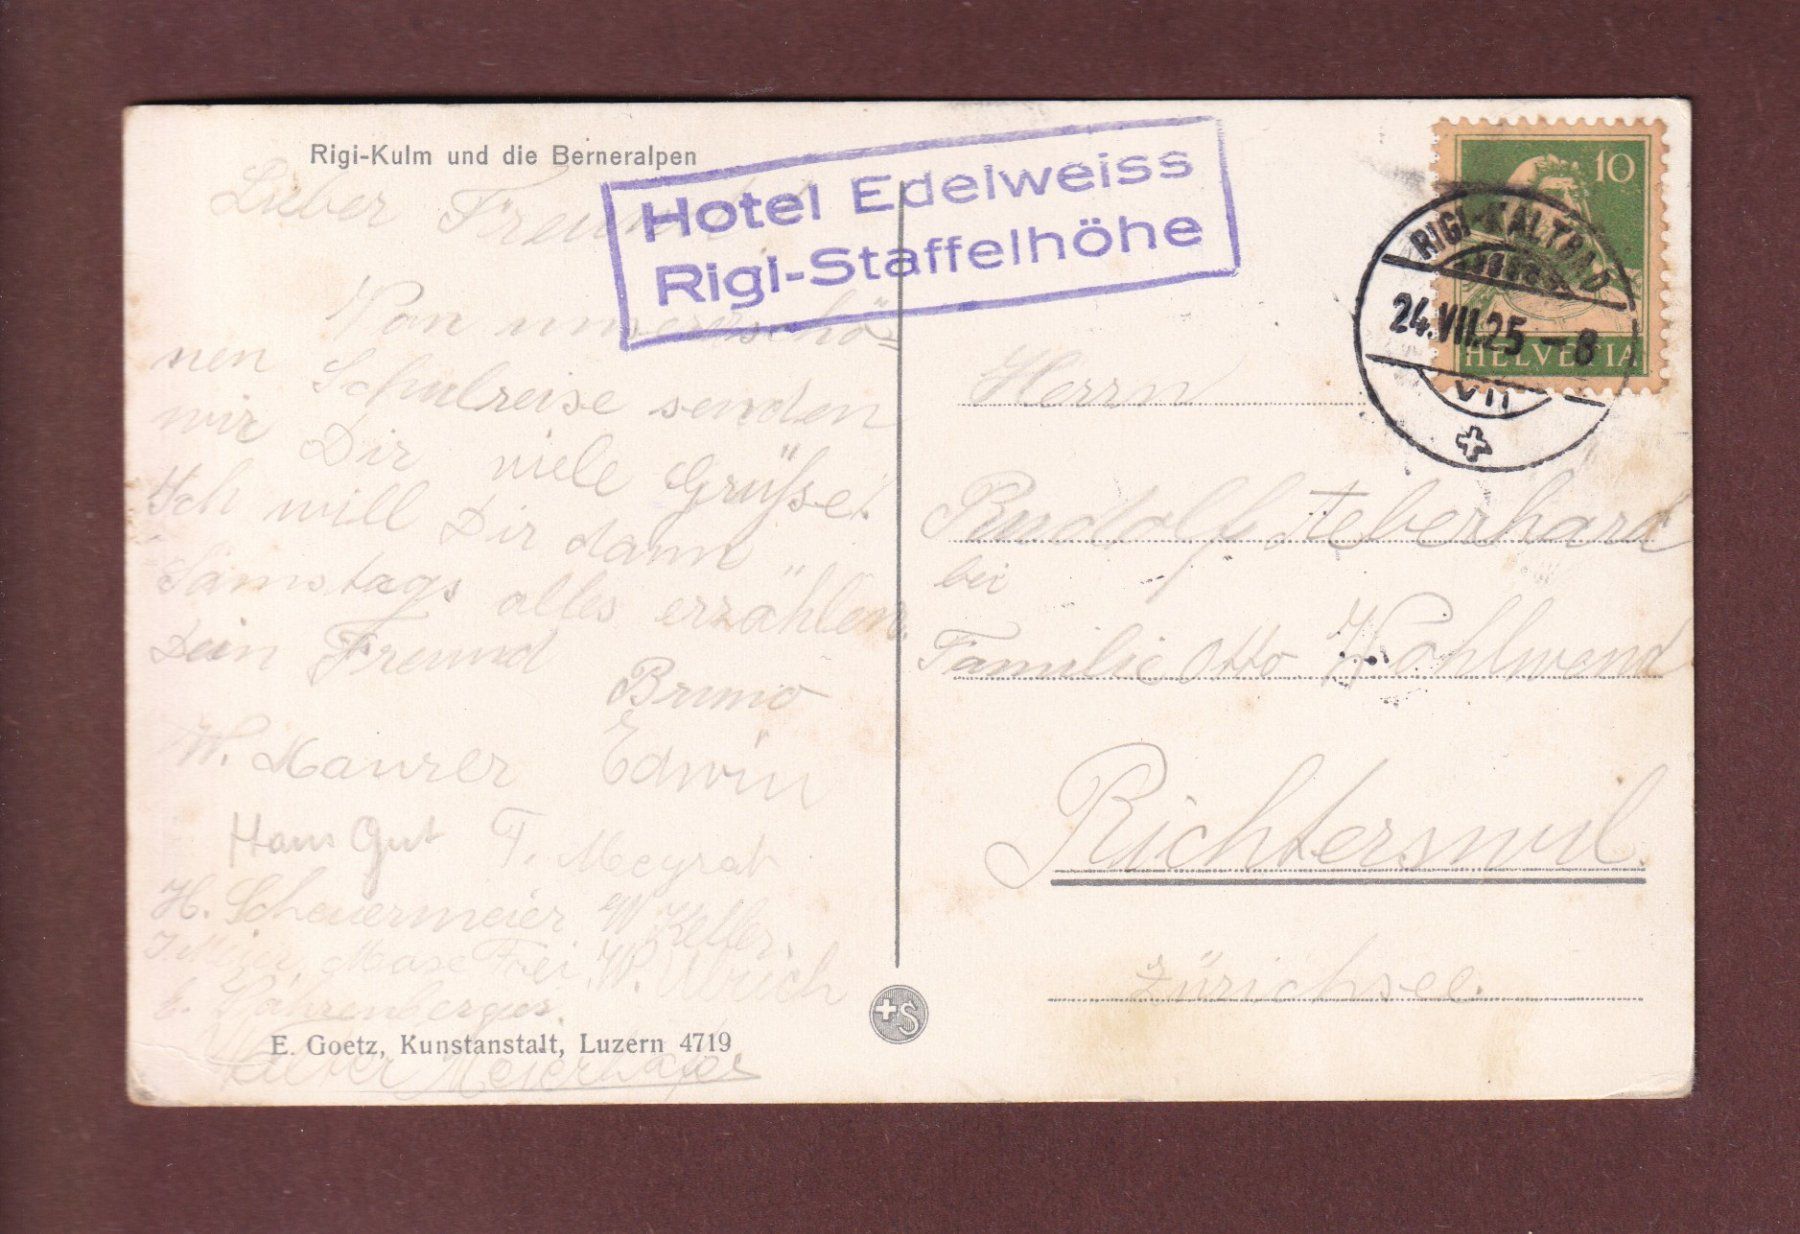 Rigi-Kulm und die Berneralpen
Hotel Edelweiss
Rigi-Staffelhöhe
10
HELVETIA
RIGI-KALTBAD
24.VII.25-8
VII
Lieber Freund
Von unserer schö=
nen Schulreise senden
wir Dir viele Grüße!
Ich will Dir dann
Samstags alles erzählen.
Dein Freund
Bruno
W. Maurer Edwin
Hans Gut F. Meyrat
H. Scheuermeier W. Keller.
J. Meier, Frei. W. Ulrich
E. Goetz, Kunstanstalt, Luzern 4719
Herrn
Rudolf Aeberhard
bei
Familie Otto Wohlwend
Richterswil.
Zürichsee.
+S